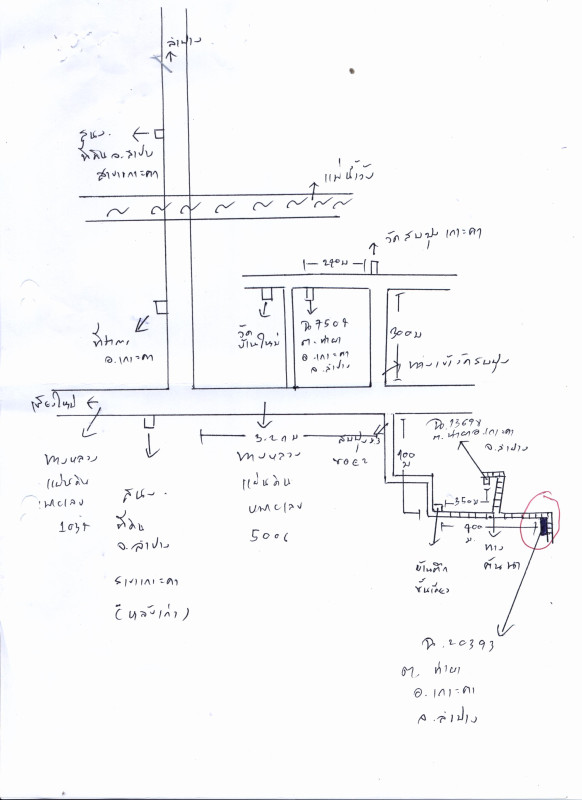 ลำปาง
สนง.
ที่ดิน จ.ลำปาง
สาขาเกาะคา
แม่น้ำวัง
วัดสบปุง เกาะคา
240ม
ที่ว่าการ
อ.เกาะคา
วัด
บ้านใหม่
ฉ.7504
ต.ท่าผา
อ.เกาะคา
จ.ลำปาง
300ม
ทางเข้าวัดสบปุง
เชียงใหม่
3.2กม
สบปุง
ซอย2
400
ม
ต.ท่าผา อ.เกาะคา
จ.ลำปาง
ทางหลวง
แผ่นดิน
หมายเลข
สนง.
ที่ดิน
จ.ลำปาง
สาขาเกาะคา
(หลังเก่า)
ทางหลวง
แผ่นดิน
หมายเลข
350ม
400
ม.
บ้านตึก
ชั้นเดียว
ทาง
คันนา
ฉ.20393
ต. ท่าผา
อ.เกาะคา
จ.ลำปาง